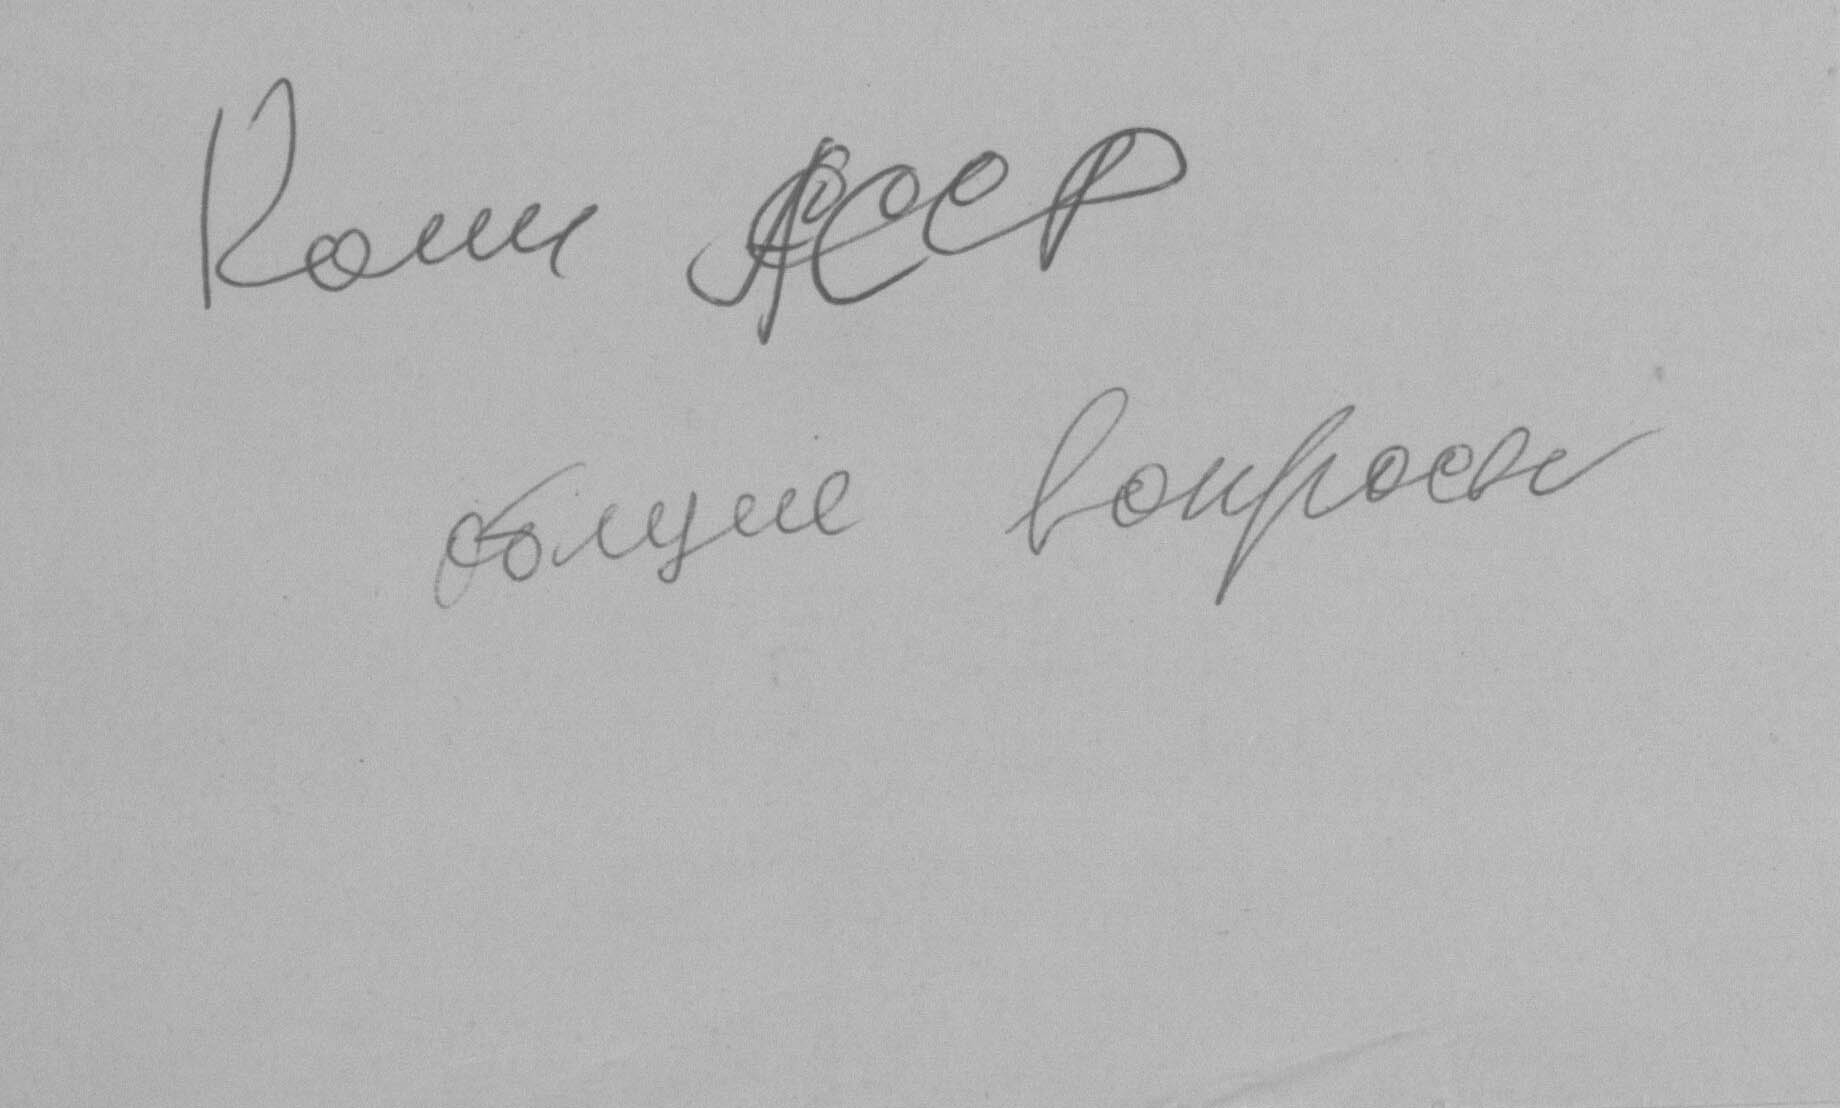 Коми АССР
общие вопросы